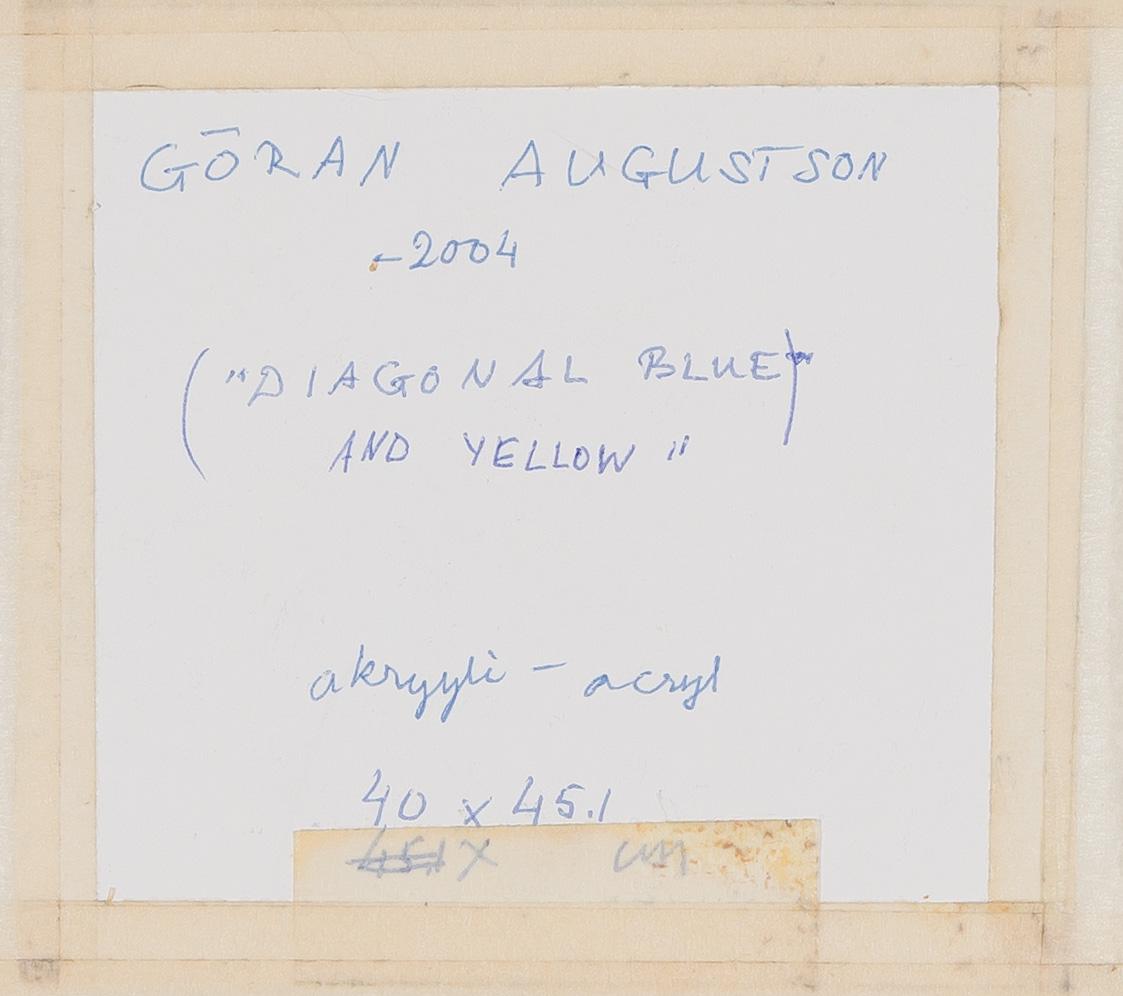 GŌRAN AUGUSTSON
-2004
("DIAGONAL BLUE)
AND YELLOW"
akryyli - acryl
40 x 45.1
45.1 X cm